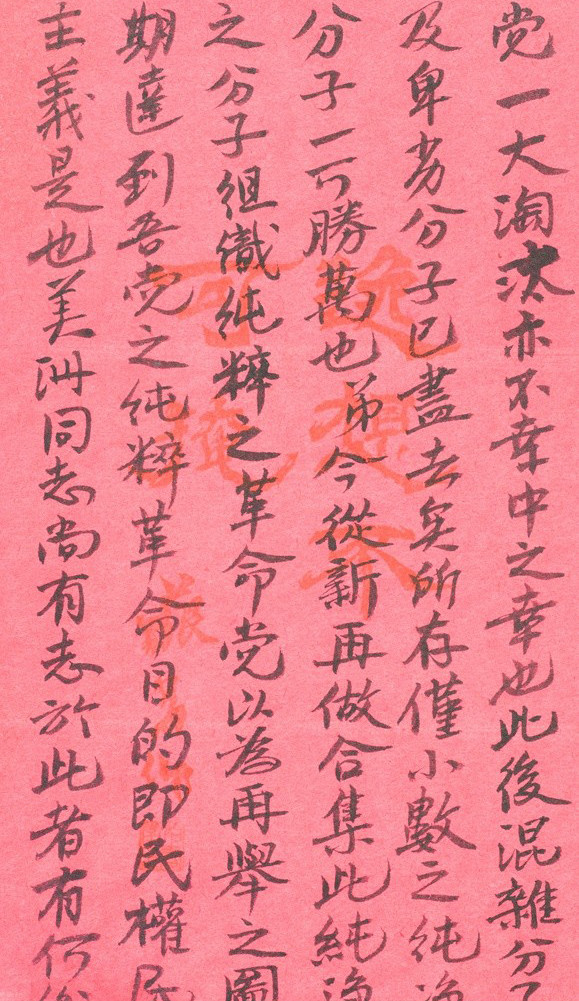 党一大淘汰亦不幸中之幸也此後混雜分子
及卑劣分子已盡去矣所存僅小數之純净
分子一可勝萬也弟今從新再做合集此純净
之分子組織純粹之革命党以為再舉之圖
期達到吾党之純粹革命目的即民權民
主義是也美洲同志尚有志於此者有何